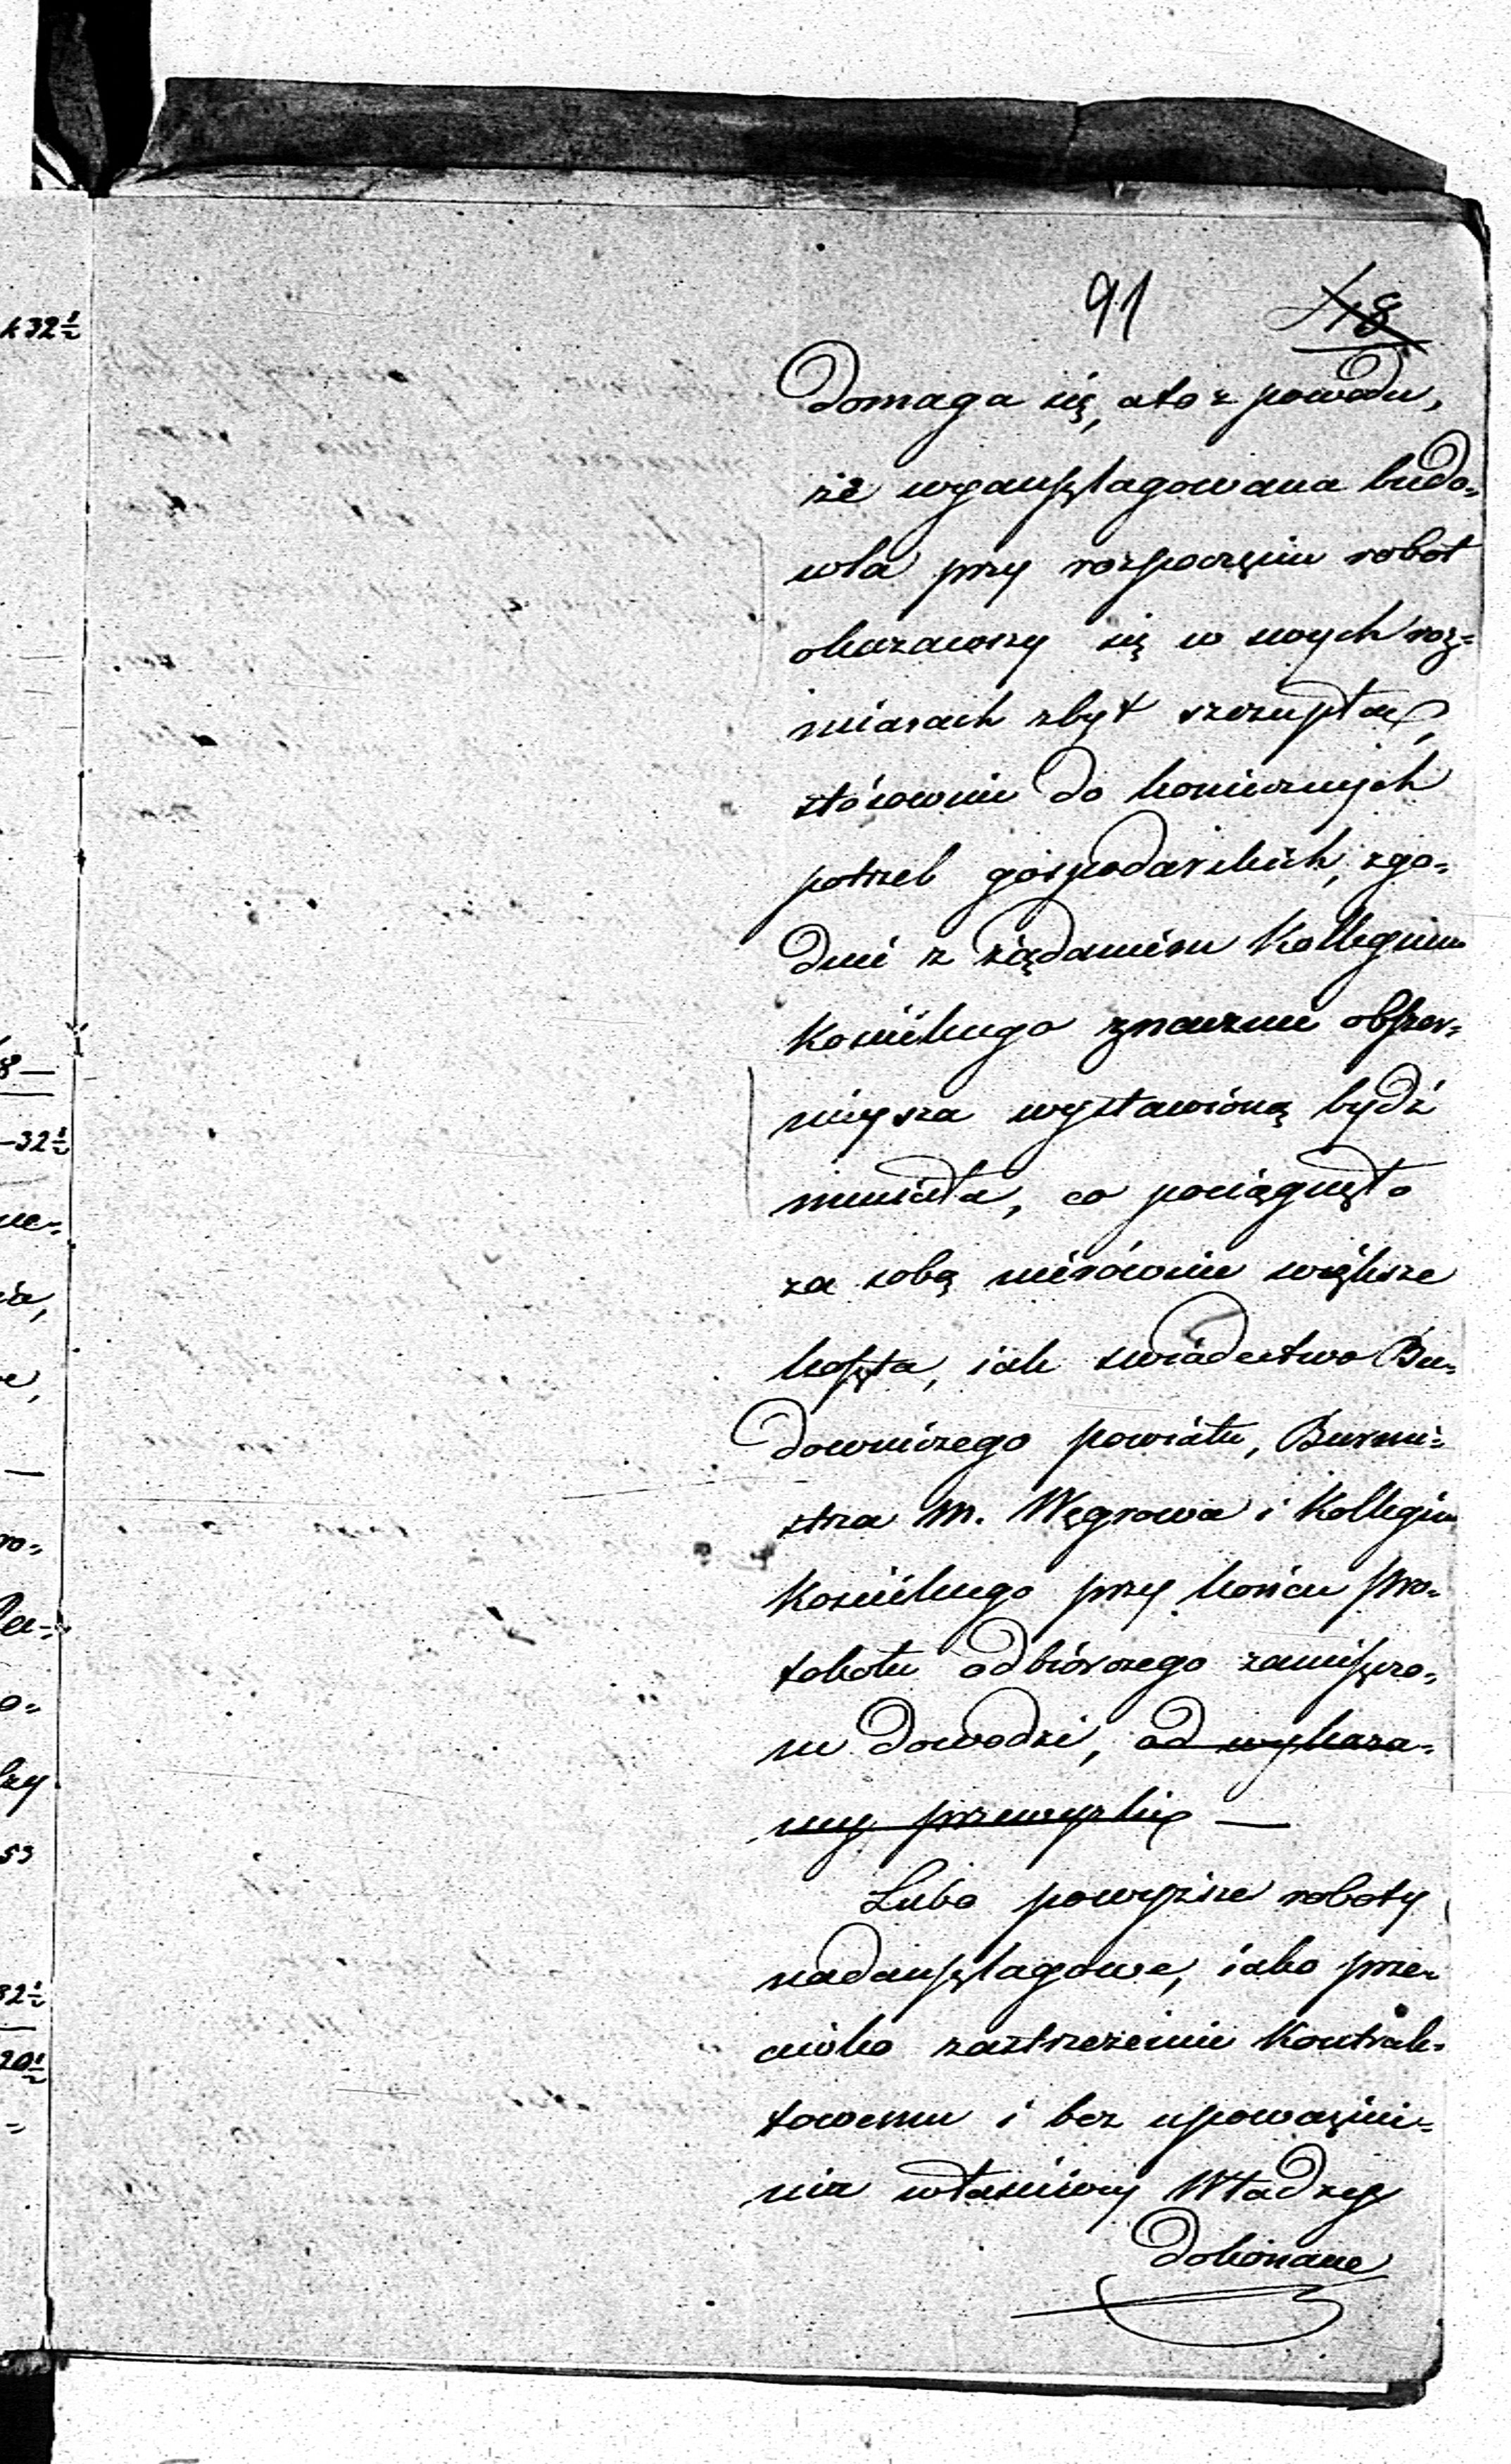 91 118
Domaga się, a to z powodu,
że wyanszlagowana budo=
wla przy rozpoczęciu robót
okazawszy się w swych roz=
miarach zbyt szczupłą,
stósownie do koniecznych
potrzeb gospodarskich, zgo=
dnie z żądaniem Kollegium
Kościelnego znacznie obszer=
nieysza wystawioną bydź
musiała, co pociągnęło
za sobą nierównie większe
koszta, iak świadectwo Bu=
downiczego powiatu, Burmi=
strza M. Węgrowa i Kollegium
Kościelnego przy końcu pro=
tokołu odbiórczego zamieszczo=
ne dowodzi, od wykaza=
ney przewyżki —
Lubo powyższe roboty
nadanszlagowe, iako prze=
ciwko zastrzeżeniu Kontrak=
towemu i bez upoważnie=
nia właściwey Władzy
dokonane